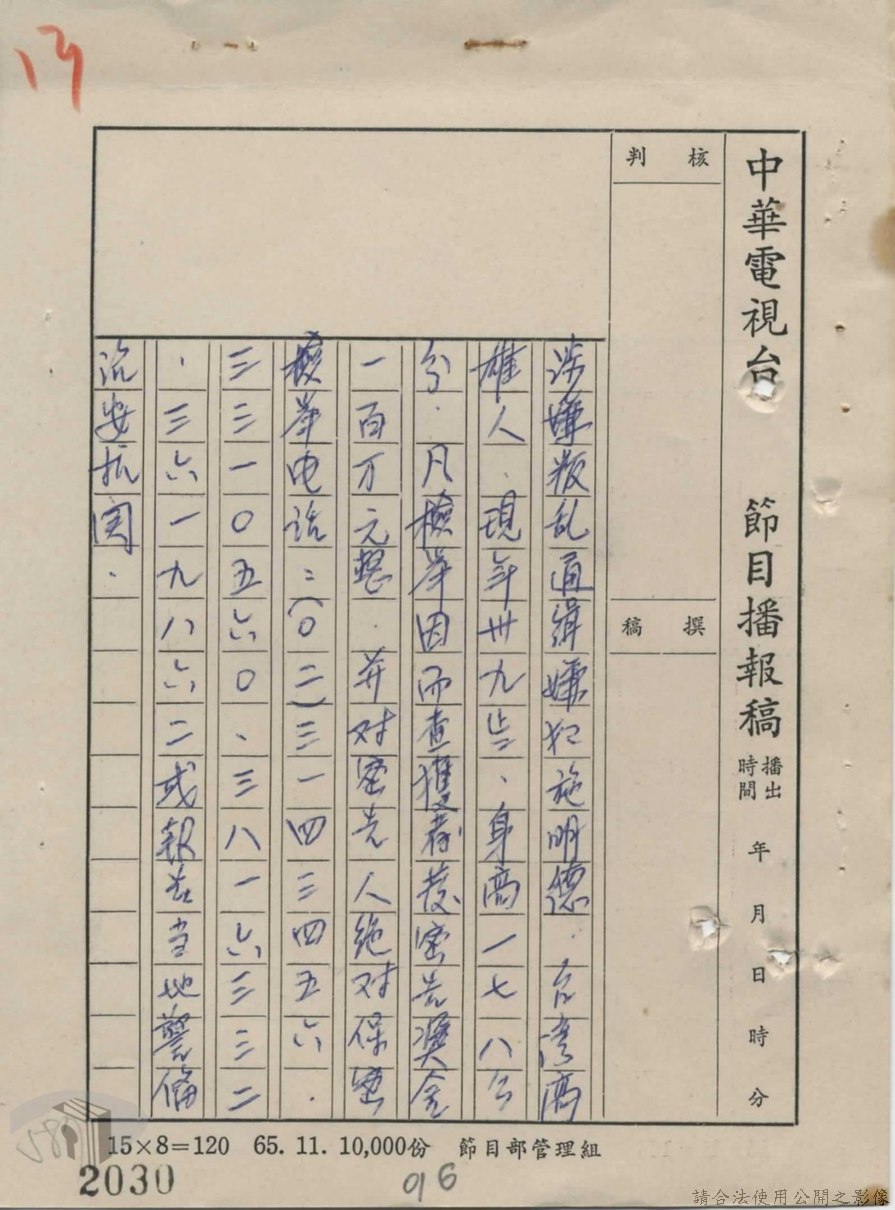 13
中華電視台 節目播報稿 播出時間 年 月 日 時 分
核判
撰稿
涉嫌叛乱通緝嫌犯施明德．台湾高
雄人．現年卅九歲、身高一七八公
分．凡檢举因而查獲者發密告獎金
一百万元整．并对密告人絕对保密
檢举电話：(〇二)三一四三四五六．
三三一〇五六〇、三八一六三三二
．三六一九八六二或報告当地警備
治安机関．
15×8＝120 65. 11. 10,000份 節目部管理組
2030
96
請合法使用公開之影像